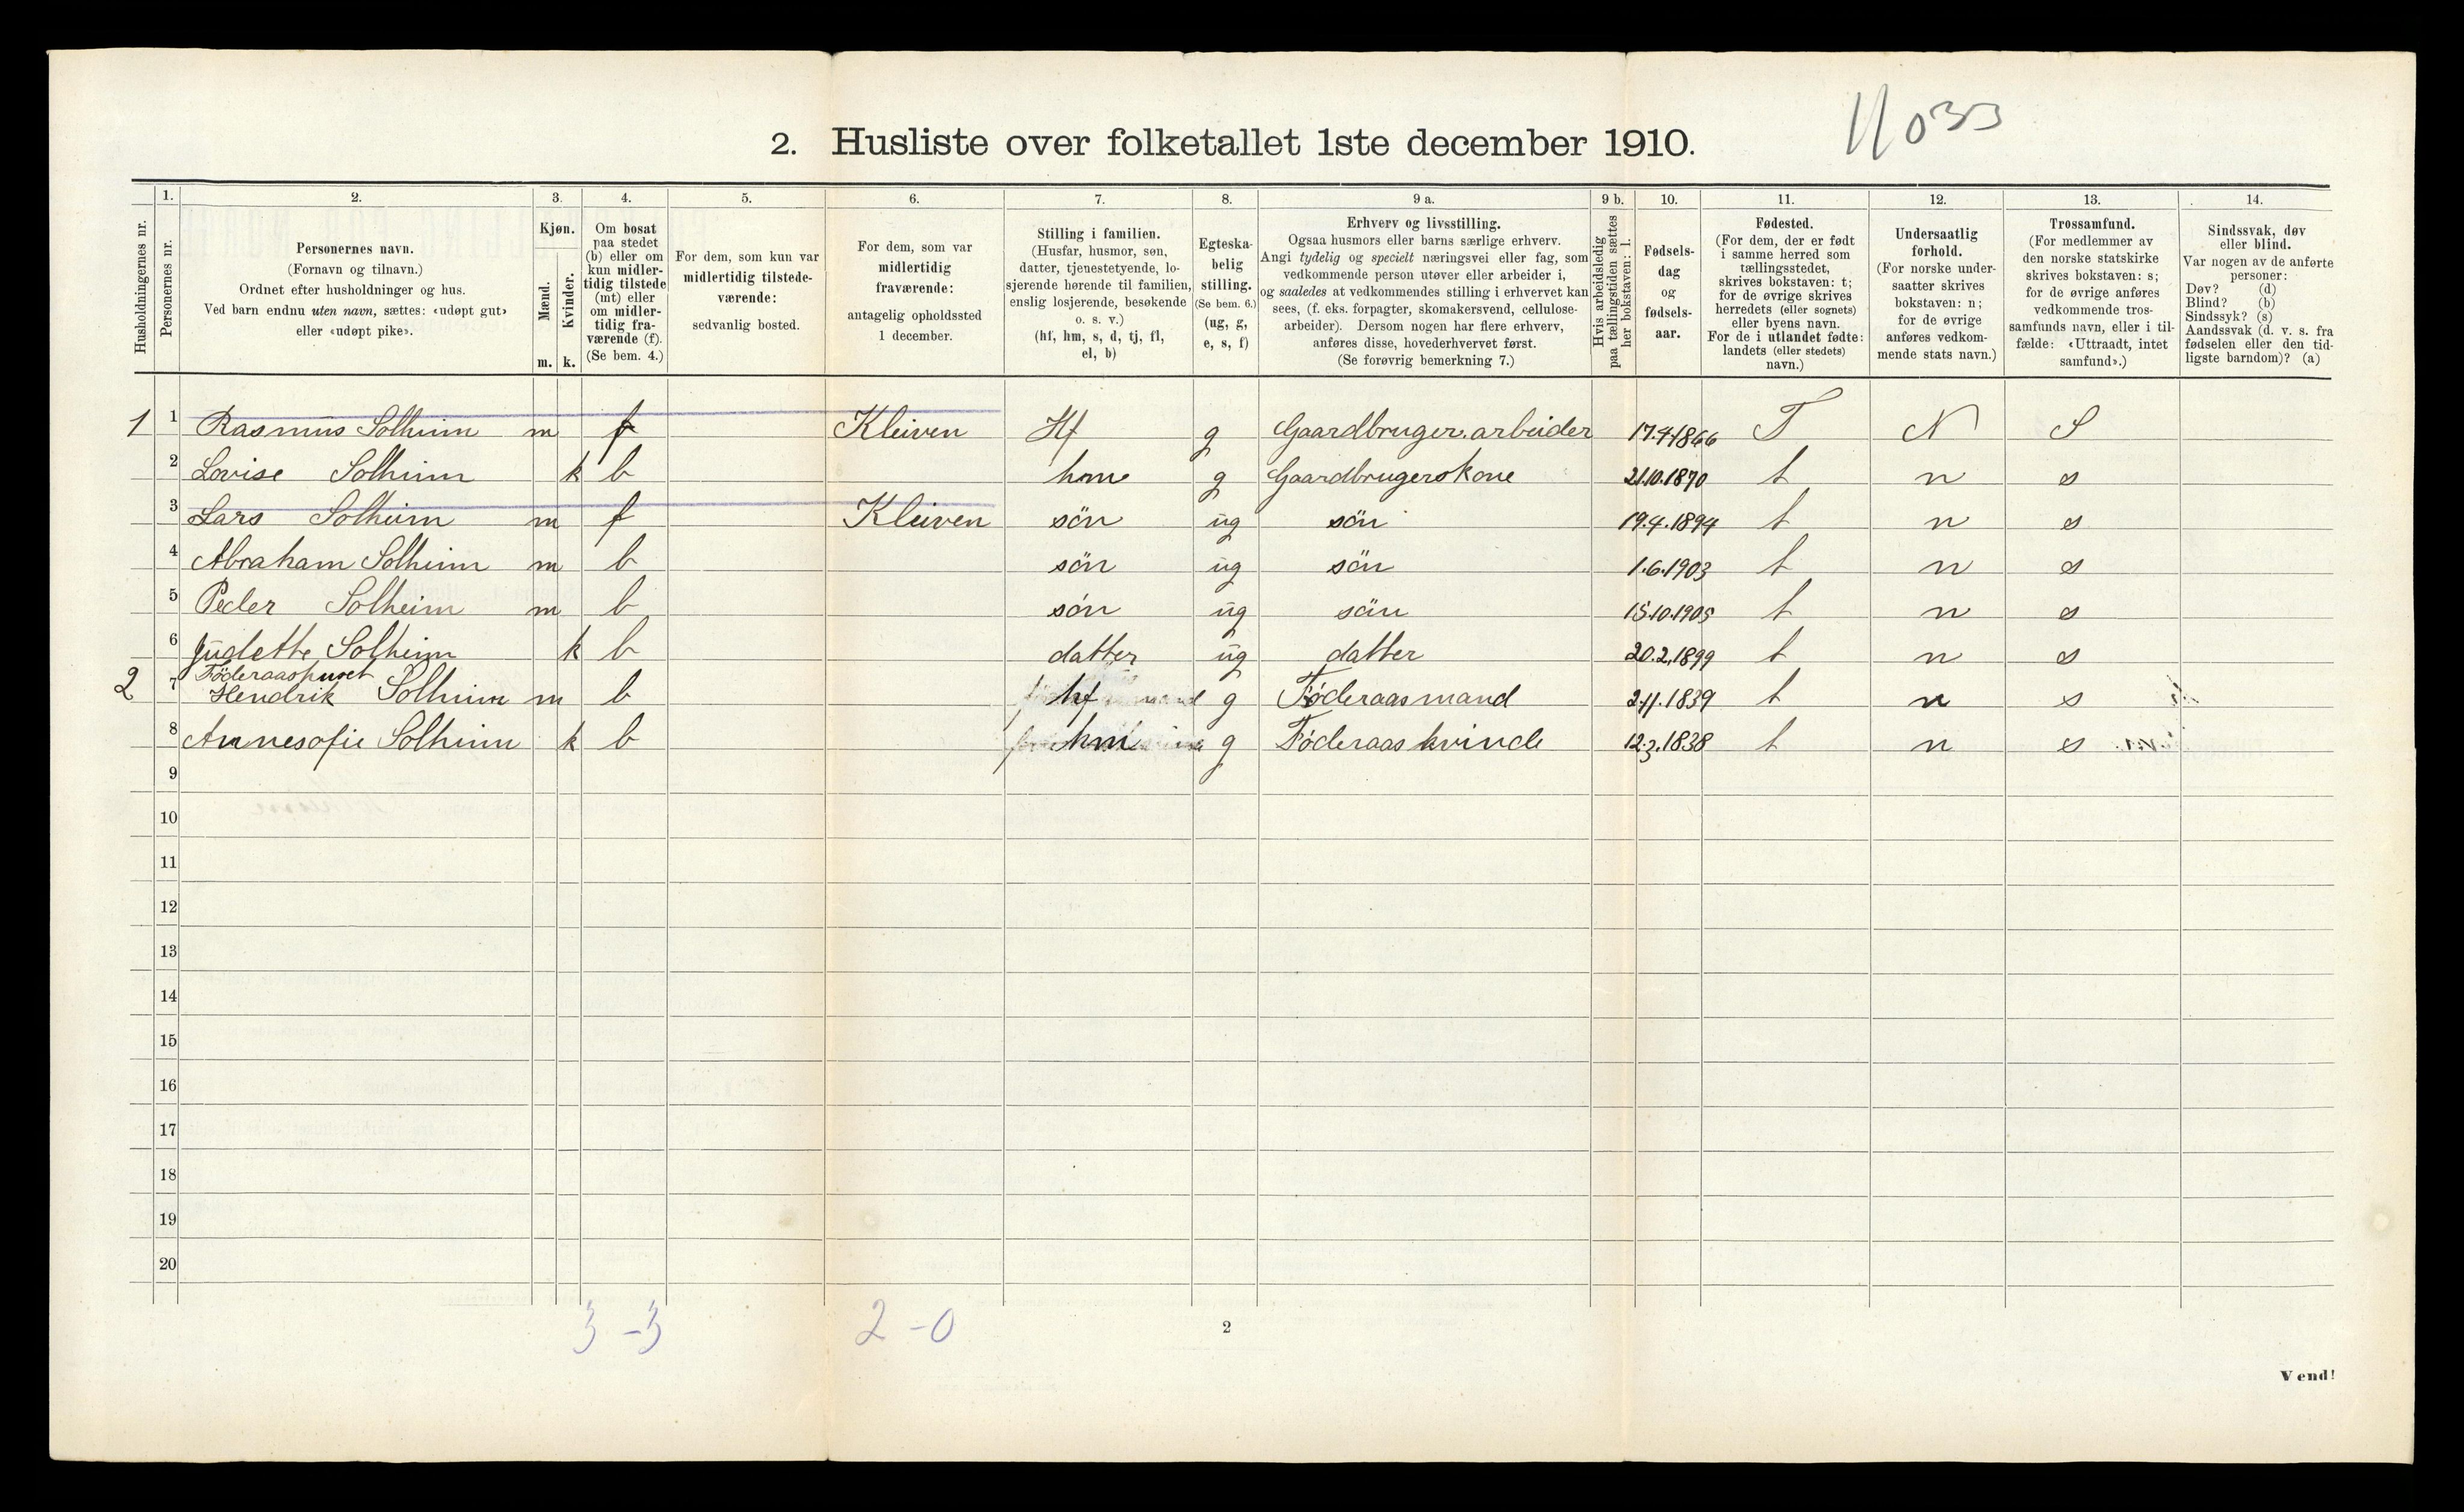 11033
2. Husliste over folketallet 1ste december 1910.
Husholdningernes nr.
1. Personernes nr.
2. Personernes navn.
(Fornavn og tilnavn.)
Ordnet efter husholdninger og hus.
Ved barn endnu uten navn, sættes: «udøpt gut»
eller «udøpt pike».
3. Kjøn.
Mænd. m.
Kvinder. k.
4. Om bosat
paa stedet
(b) eller om
kun midler-
tidig tilstede
(mt) eller
om midler-
tidig fra-
værende (f).
(Se bem. 4.)
5. For dem, som kun var
midlertidig tilstede-
værende:
sedvanlig bosted.
6. For dem, som var
midlertidig
fraværende:
antagelig opholdssted
1 december.
7. Stilling i familien.
(Husfar, husmor, søn,
datter, tjenestetyende, lo-
sjerende hørende til familien,
enslig losjerende, besøkende
o. s. v.)
(hf, hm, s, d, tj, fl,
el, b)
8. Egteska-
belig
stilling.
(Se bem. 6.)
(ug, g,
e, s, f)
9 a. Erhverv og livsstilling.
Ogsaa husmors eller barns særlige erhverv.
Angi tydelig og specielt næringsvei eller fag, som
vedkommende person utøver eller arbeider i,
og saaledes at vedkommendes stilling i erhvervet kan
sees, (f. eks. forpagter, skomakersvend, cellulose-
arbeider). Dersom nogen har flere erhverv,
anføres disse, hovederhvervet først.
(Se forøvrig bemerkning 7.)
9 b. Hvis arbeidsledig
paa tællingstiden sættes
her bokstaven: l.
10. Fødsels-
dag
og
fødsels-
aar.
11. Fødested.
(For dem, der er født
i samme herred som
tællingsstedet,
skrives bokstaven: t;
for de øvrige skrives
herredets (eller sognets)
eller byens navn.
For de i utlandet fødte:
landets (eller stedets)
navn.)
12. Undersaatlig
forhold.
(For norske under-
saatter skrives
bokstaven: n;
for de øvrige
anføres vedkom-
mende stats navn.)
13. Trossamfund.
(For medlemmer av
den norske statskirke
skrives bokstaven: s;
for de øvrige anføres
vedkommende tros-
samfunds navn, eller i til-
fælde: «Uttraadt, intet
samfund».)
14. Sindssvak, døv
eller blind.
Var nogen av de anførte
personer:
Døv? (d)
Blind? (b)
Sindssyk? (s)
Aandssvak (d. v. s. fra
fødselen eller den tid-
ligste barndom)? (a)
1 1 Rasmus Solheim m f Kleiven Hf g Gaardbruger.arbeider 17.4.1866 T N S
2 Lovise Solheim k b hm g Gaardbrugerskone 21.10.1870 t n s
3 Lars Solheim m f Kleiven sön ug sön 19.4.1894 t n s
4 Abraham Solheim m b sön ug sön 1.6.1903 t n s
5 Peder Solheim m b sön ug sön 15.10.1905 t n s
6 Judette Solheim k b datter ug datter 20.2.1899 t n s
Föderaashuset
2 7 Hendrik Solheim m b hf g Föderaasmand 2.11.1839 t n s
8 Annesofie Solheim k b hm g Föderaaskvinde 12.3.1838 t n s
9
10
11
12
13
14
15
16
17
18
19
20
3 - 3 2 - 0
2
Vend!